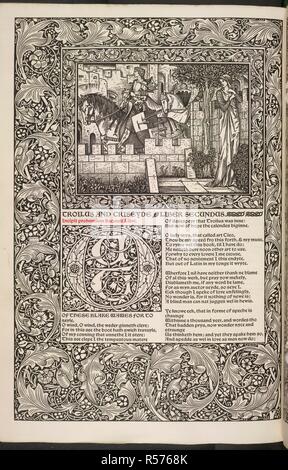 TROILUS AND CRISEYDE. LIBER SECUNDUS.
Incipit prohemium Secundi Libri.
OUT OF THESE BLAKE WAWES FOR TO
sayle,
O wind, O wind, the weder ginneth clere;
For in this see the boot hath swich travayle,
Of my conning that unnethe I it stere:
This see clepe I the tempestous matere
Of desespeyr that Troilus was inne:
But now of hope the calendes biginne.
O lady myn, that called art Cleo,
Thou be my speed fro this forth, & my muse,
To ryme wel this book, til I have do;
Me nedeth here noon other art to use.
Forwhy to every lovere I me excuse,
That of no sentement I this endyte,
But out of Latin in my tonge it wryte.
Wherfore I nil have neither thank ne blame
Of al this werk, but prey yow mekely,
Disblameth me, if any word be lame,
For as myn auctor seyde, so seye I.
Eek though I speke of love unfelingly,
No wonder is, for it nothing of newe is;
A blind man can not juggen wel in hewis.
Ye knowe eek, that in forme of speche is
chaunge
Withinne a thousand yeer, and wordes tho
That hadden prys, now wonder nyce and
straunge
Us thinketh hem; and yet they spake hem so,
And spedde as wel in love as men now do;
alamy
Image ID: R5768K
www.alamy.com